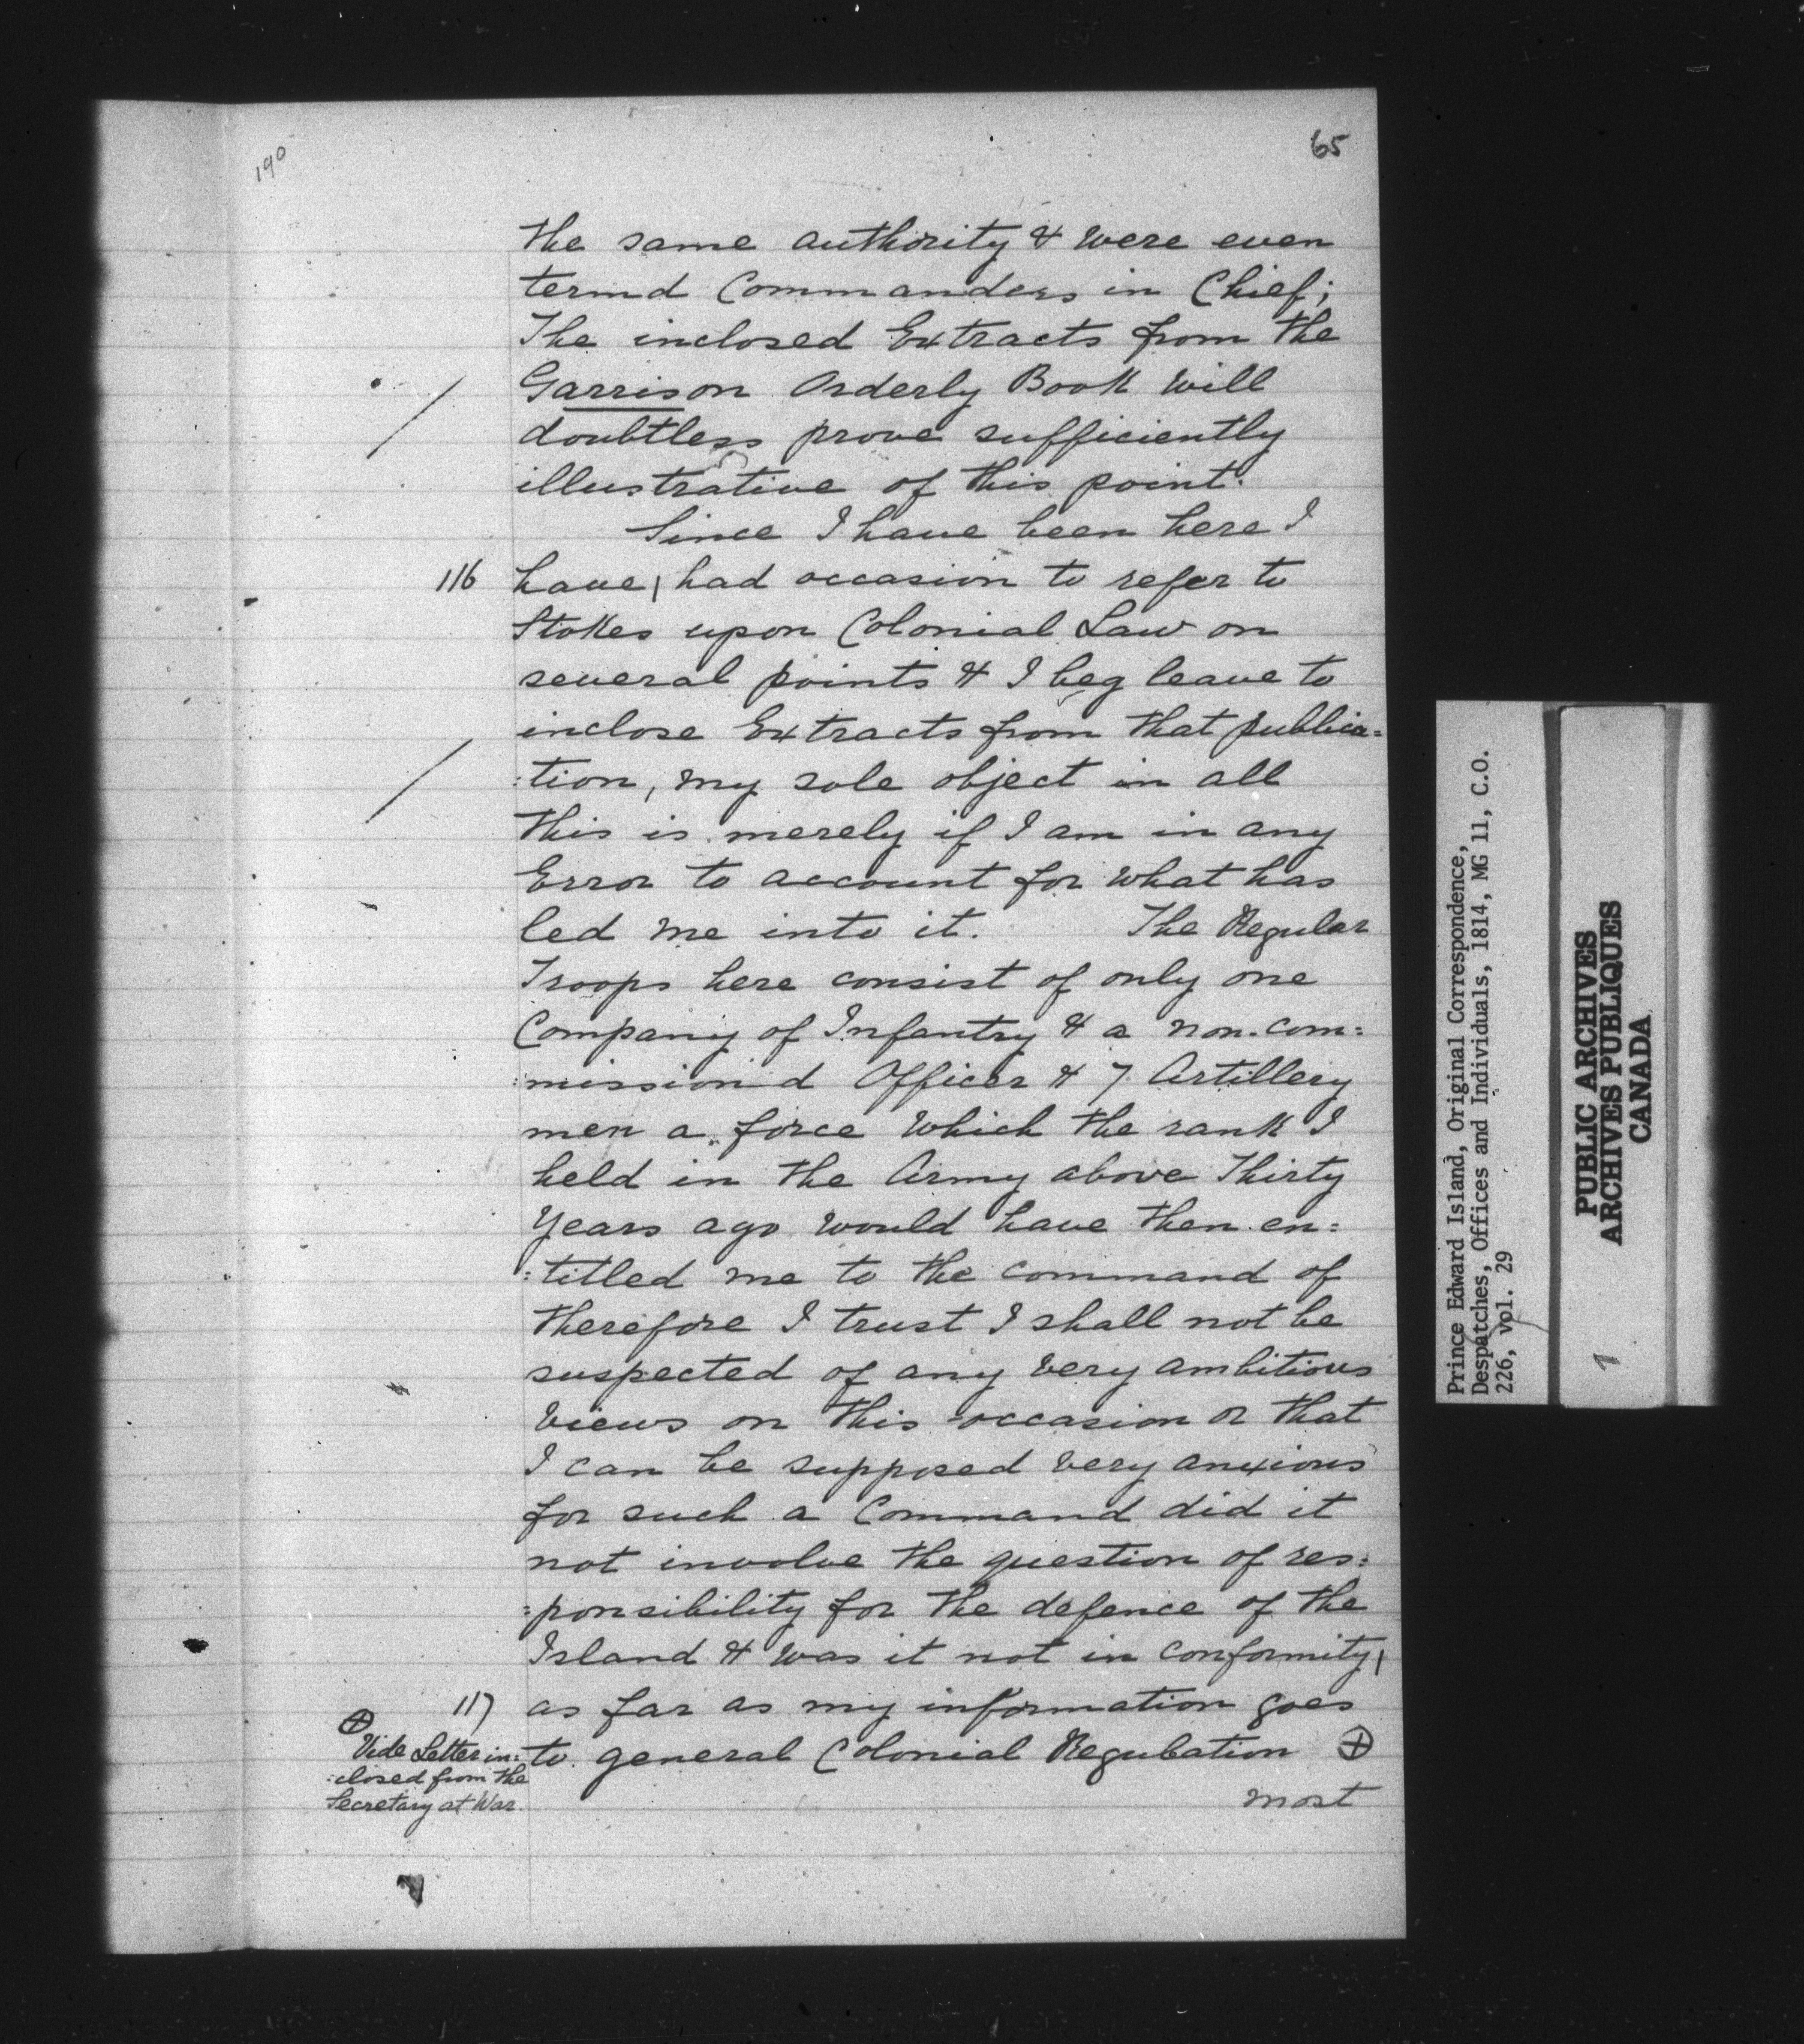 190
65
the same authority & were even
termd Commanders in Chief;
The inclosed Extracts from the
Garrison Orderly Book will
doubtless prove sufficiently
illustrative of this point.
Since I have been here I
116 have | had occasion to refer to
Stokes upon Colonial Law on
several points & I beg leave to
inclose Extracts from that publica=
:tion, my sole object in all
this is merely if I am in any
Error to account for what has
led me into it. The Regular
Troops here consist of only one
Company of Infantry & a non-com=
:mission'd Officer & 7 Artillery
men a force which the rank I
held in the Army above Thirty
Years ago would have then en=
:titled me to the command of
therefore I trust I shall not be
suspected of any very ambitious
views on this occasion or that
I can be supposed very anxious
for such a Command did it
not involve the question of res=
:ponsibility for the defence of the
Island & was it not in conformity |
117 as far as my information goes
to general Colonial Regulation ⊕
most
⊕
Vide Letter in=
:closed from the
Secretary at War.
Prince Edward Island, Original Correspondence,
Despatches, Offices and Individuals, 1814, MG 11, C.O.
226, vol. 29
PUBLIC ARCHIVES
ARCHIVES PUBLIQUES
CANADA